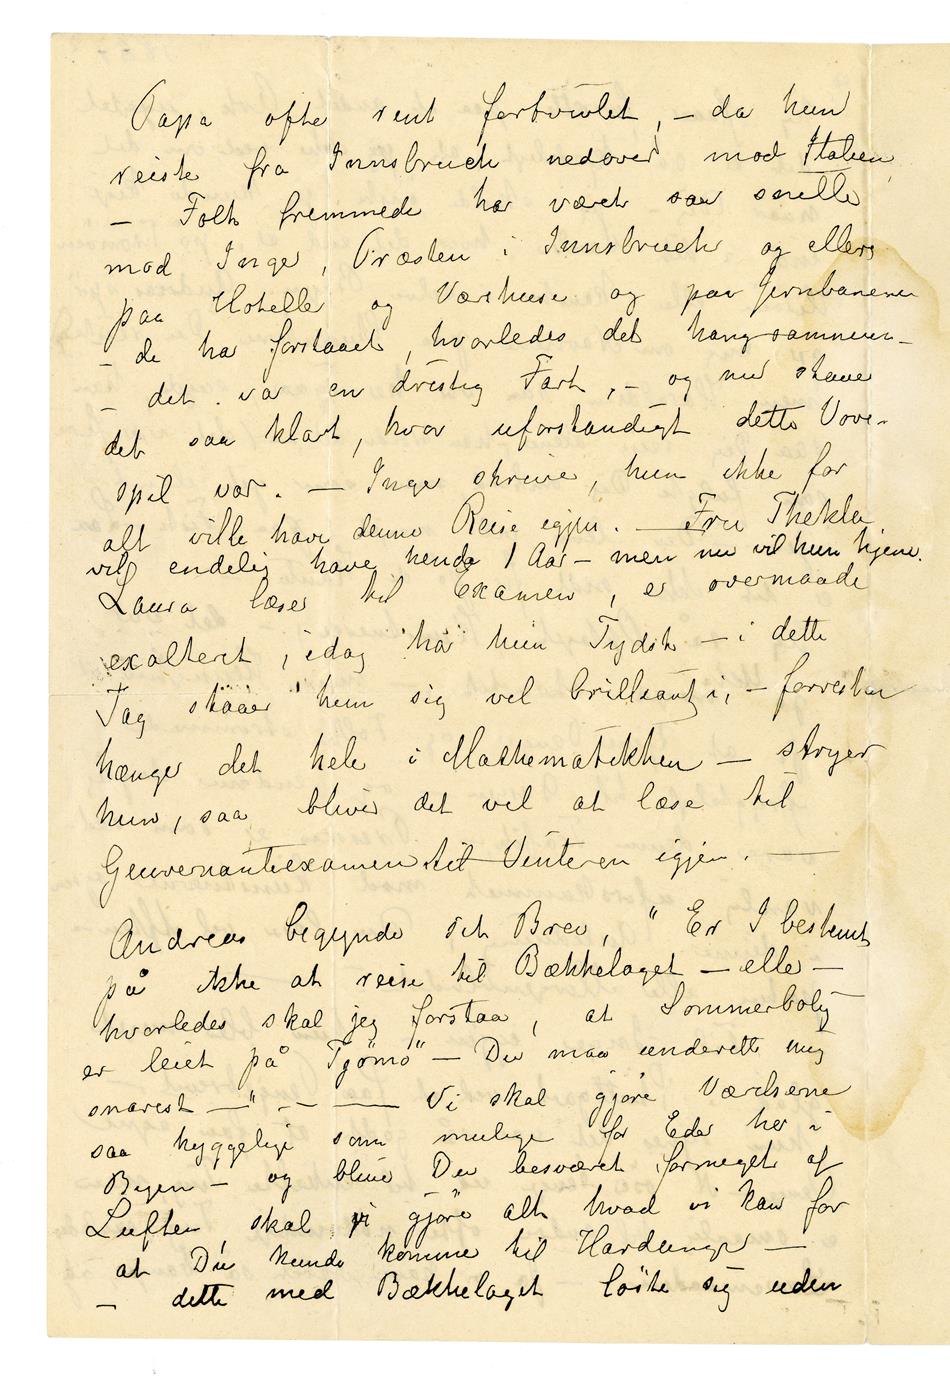 Papa ofte rent fortvivlet, – da hun
reiste fra Innsbruck nedover mod Italien,
– Folk fremmede har været saa snille
mod Inger, Præsten i Innsbruck og ellers
paa Hoteller og Værthuse og paa Jernbanerne
– de har forstaaet, hvorledes det hang sammen –
– det var en dristig Fart, – og nu staaer
det saa klart, hvor uforstandigt dette Vove-
spil var. – Inger skriver, hun ikke for
alt ville have denne Reise igjen. – Fru Thekla
vil endelig have hende 1 Aar – men nu vil hun hjem.
Laura læser til Examen, er overmaade
exalteret, idag har hun Tydsk – i dette
Fag staaer hun sig vel brilliant i, – forresten
hænger det hele i Mathematikken – stryger
hun, saa bliver det vel at læse til
Guvernanteexamen til Vinteren igjen. —
Andreas begynder sit Brev, "Er I bestemt
på ikke at reise til Bækkelaget – eller –
hvorledes skal jeg forstaa, at Sommerbolig
er leiet på Tjømø" – Du maa underrette mig
snarest —" – — Vi skal gjøre Værelserne
saa hyggelige som mulige for Eder her i
Byen – og bliver Du besværet formeget af
Luften, skal vi gjøre alt hvad vi kan for
at Du kunde komme til Hardanger —
– dette med Bækkelaget løste sig uden